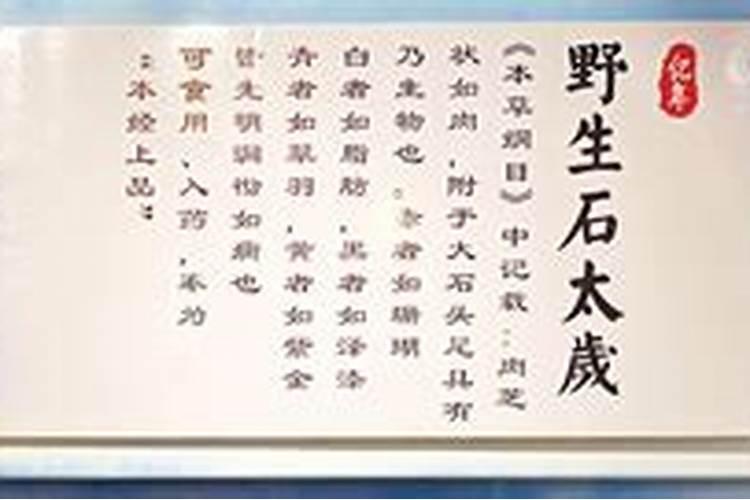 亿年
野生石太歲
《本草纲目》中记载：肉芝
状如肉，附于大石头尾具有
乃生物也。赤者如珊瑚
白者如脂肪，黑者如泽漆
青者如翠羽，黄者如紫金
皆光明如也
可食用、入药，为
：本经上品：